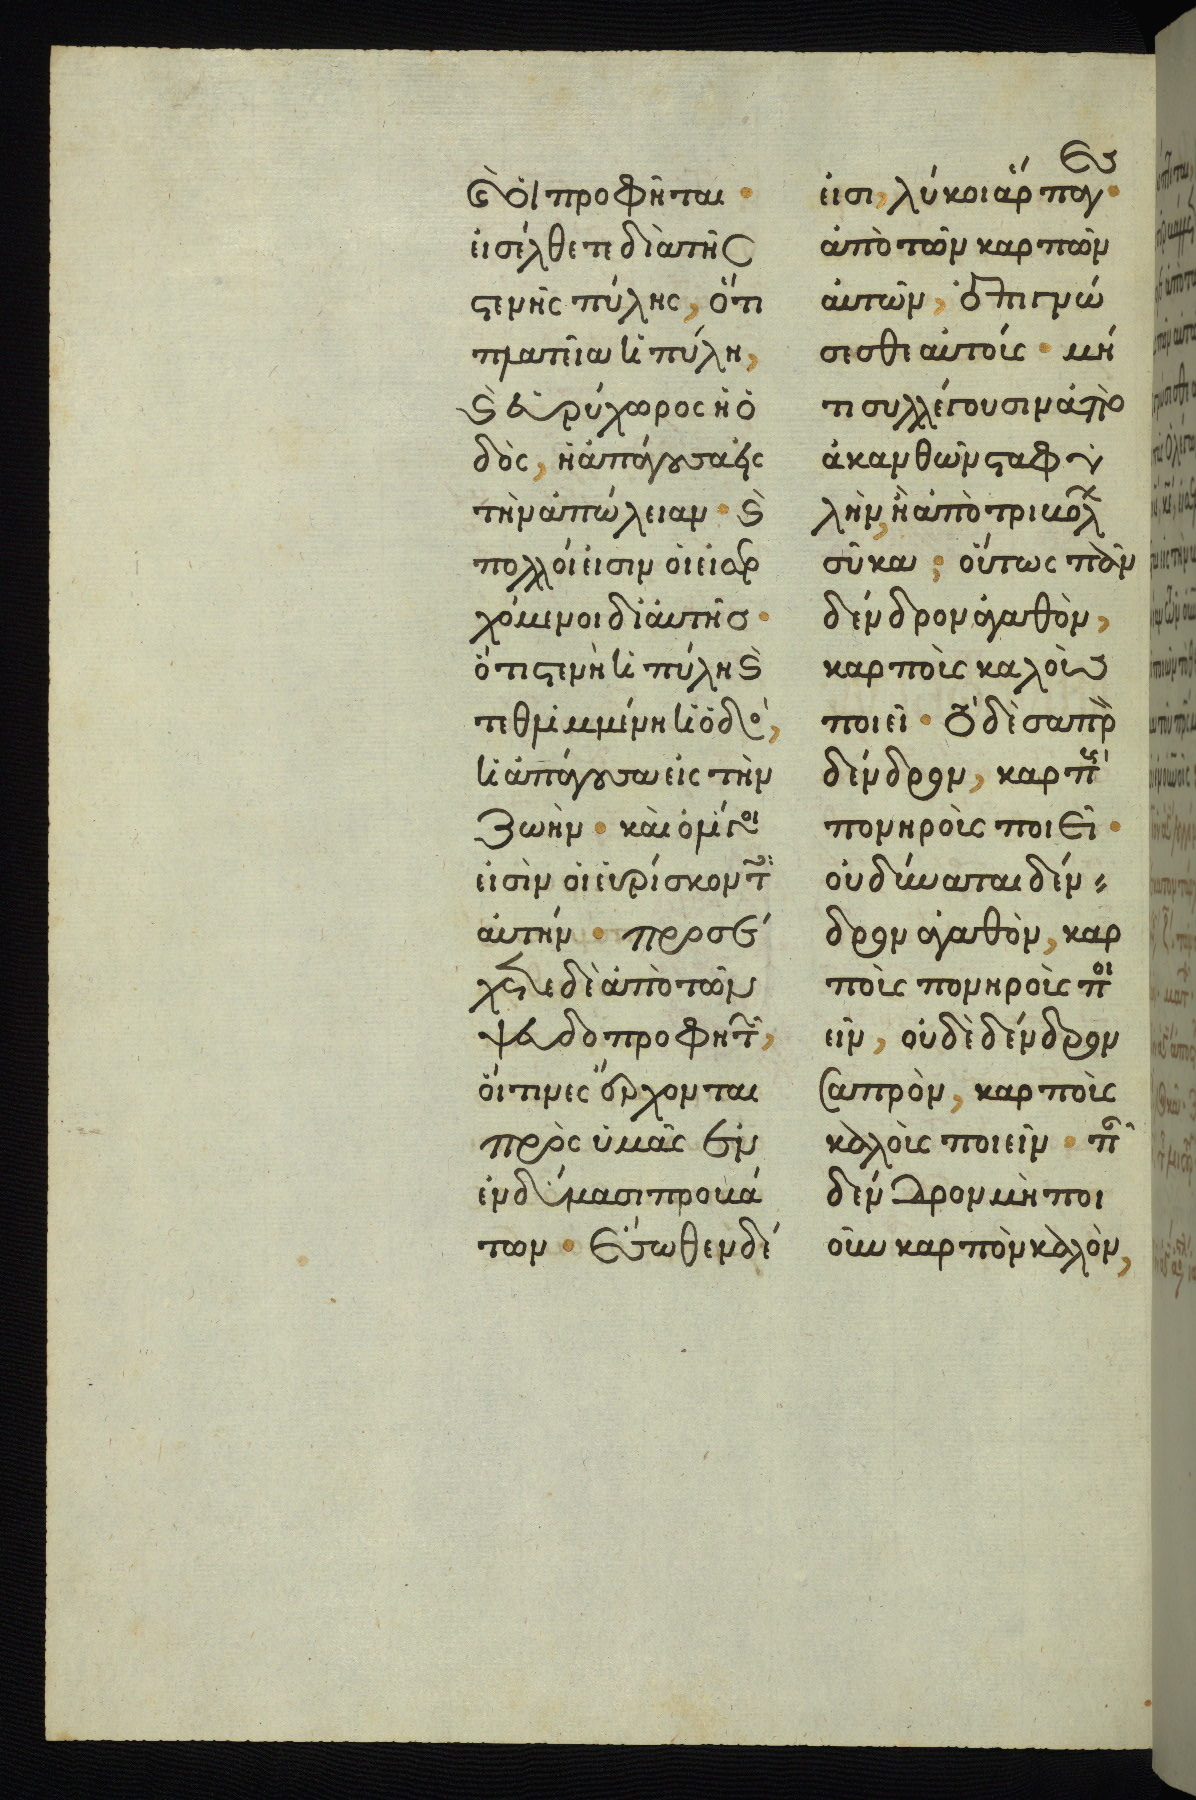 καὶ οἱ προφῆται ·
εἰσέλθετε διὰ τῆς
στενῆς πύλης, ὅτι
πλατεῖα ἡ πύλη,
καὶ εὐρύχωρος ἡ ὁ
δὸς, ἡ ἀπάγουσα εἰς
τὴν ἀπώλειαν · καὶ
πολλοί εἰσιν οἱ εἰσερ
χόμενοι δι' αὐτῆς ·
ὅτι στενὴ ἡ πύλη καὶ
τεθλιμμένη ἡ ὁδός,
ἡ ἀπάγουσα εἰς τὴν
ζωὴν · καὶ ὀλίγοι
εἰσὶν οἱ εὑρίσκοντες
αὐτήν · προσέ
χετε δὲ ἀπὸ τῶν
ψευδοπροφητῶν,
οἵτινες ἔρχονται
πρὸς ὑμᾶς ἐν
ἐνδύμασι προβά
των · ἔσωθεν δέ
εἰσι, λύκοι ἅρπαγες ·
ἀπὸ τῶν καρπῶν
αὐτῶν, ἐπιγνώ
σεσθε αὐτούς · μή
τι συλλέγουσιν ἀπὸ
ἀκανθῶν σταφυ
λὴν, ἢ ἀπὸ τριβόλων
σῦκα ; οὕτως πᾶν
δένδρον ἀγαθὸν,
καρποὺς καλοὺς
ποιεῖ · τὸ δὲ σαπρὸν
δένδρον, καρποὺς
πονηροὺς ποιεῖ ·
οὐ δύναται δέν
δρον ἀγαθὸν, καρ
ποὺς πονηροὺς ποι
εῖν, οὐδὲ δένδρον
σαπρὸν, καρποὺς
καλοὺς ποιεῖν · πᾶν
δένδρον μὴ ποι
οῦν καρπὸν καλὸν,